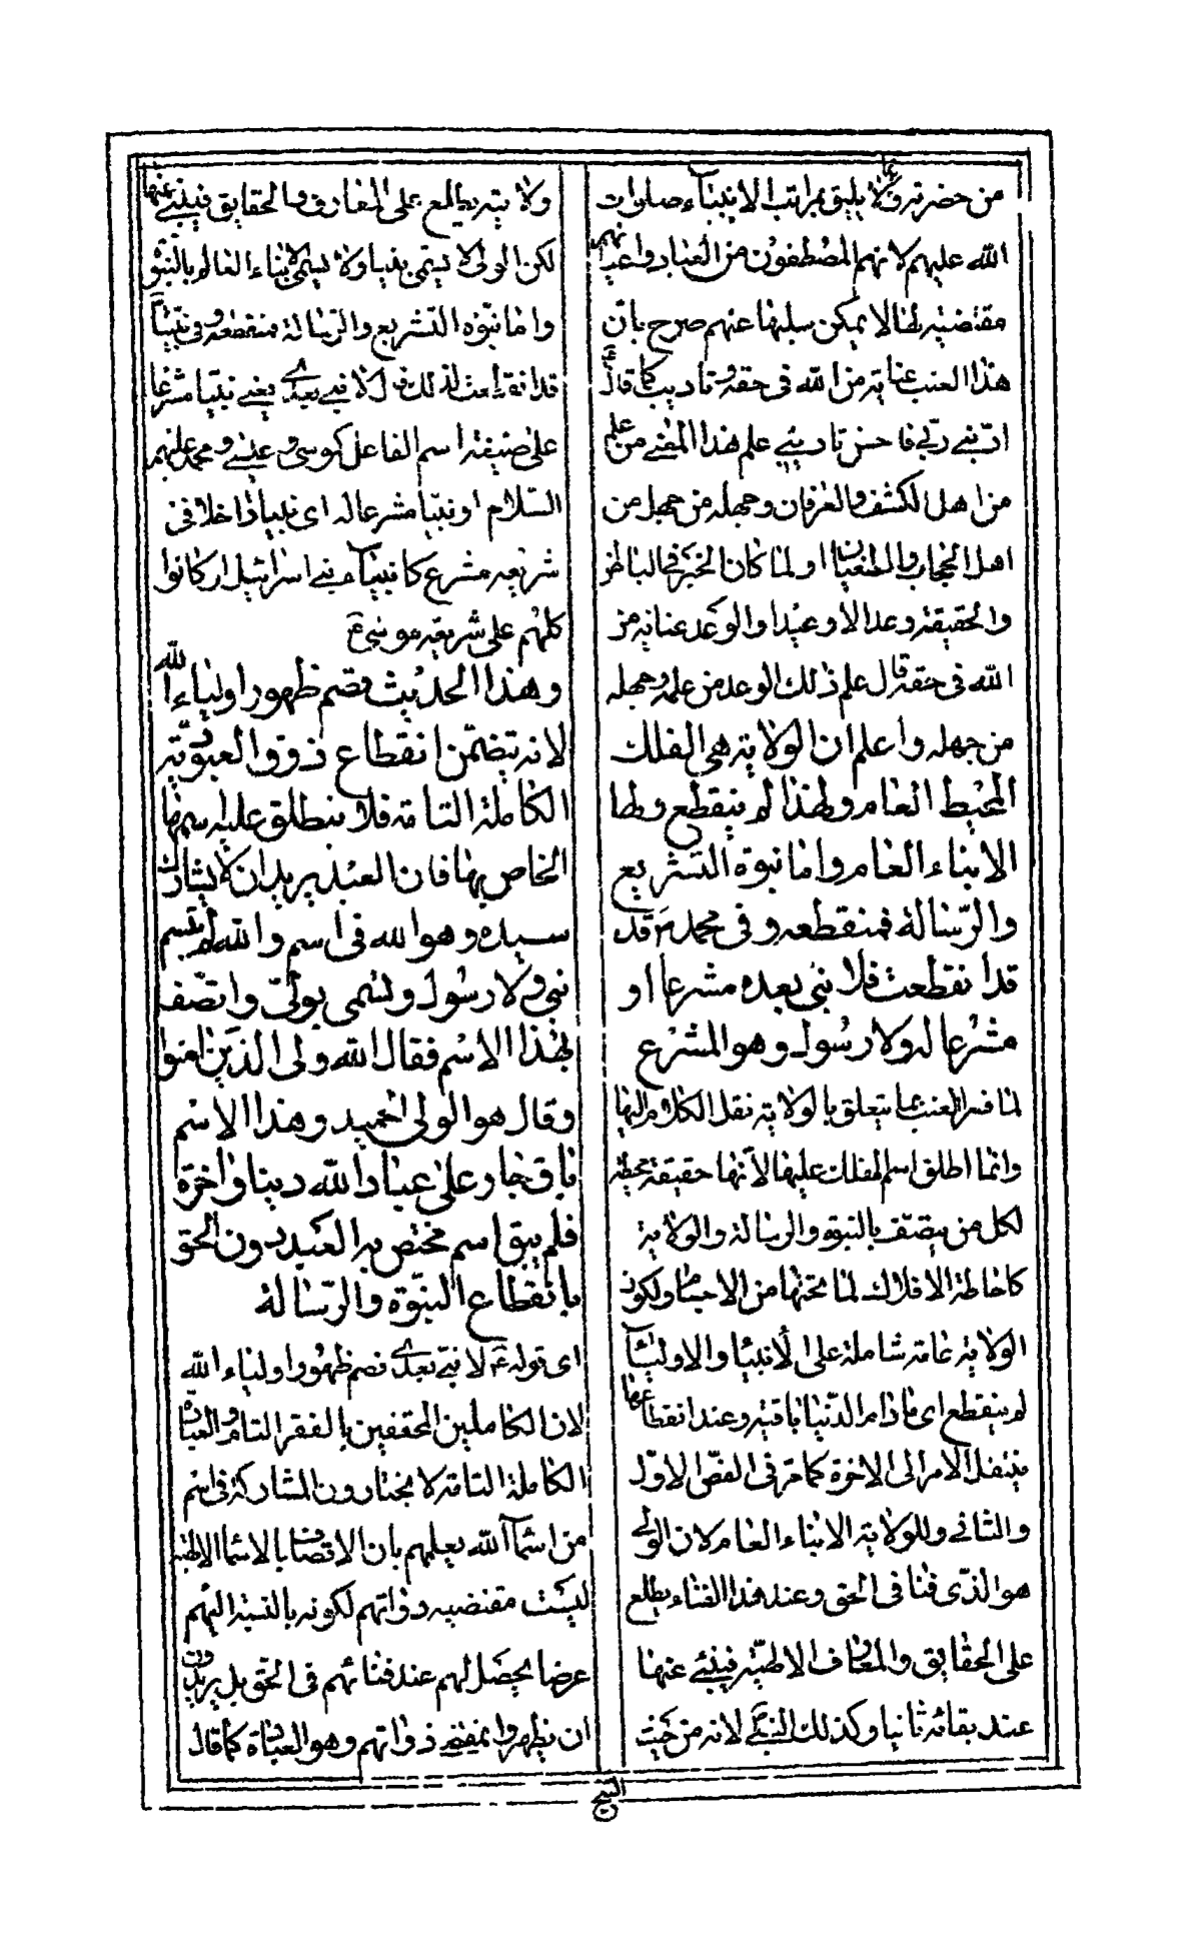 من حضرته ولا يليق بمراتب الانبياء صلوات
الله عليهم لانهم المصطفون من العباد واعيانهم
مقتضية لها لا يمكن سلبها عنهم صرح بان
هذا العتب عناية من الله فى حقه وتاديب كما قال ع
ادبنى ربى فاحسن تاديبى علم هذا المعنى من علم
من اهل الكشف والعرفان وجهله من جهل من
اهل الحجاب والطغيان ولما كان الخبر فى الباطن
والحقيقة وعدا لا وعيدا والوعد عناية من
الله فى حقه قال علم ذلك الوعد من علمه وجهله
من جهله واعلم ان الولاية هى الفلك
المحيط العام ولهذا لم ينقطع ولها
الانباء العام واما نبوة التشريع
والرسالة فمنقطعه وفى محمد ص قد
قد انقطعت فلا نبى بعده مشرعا او
مشرعا له ولا رسول وهو المشرع
لما فسر العتب بما يتعلق بالولاية نقل الكلام اليها
وانما اطلق اسم الفلك عليها لانها حقيقة محيطة
لكل من يتصف بالنبوة والرسالة والولاية
كاحاطة الافلاك لما تحتها من الاجسام ولكون
الولاية عامة شاملة على الانبياء والاولياء
لم ينقطع اى ما دام الدنيا باقية وعند انقطاعها
ينتقل الامر الى الاخرة كما مر فى الفص الاول
والثانى وللولاية الانباء العام لان الولى
هو الذى فنا فى الحق وعند هذا الفناء يطلع
على الحقايق والمعارف الالهية فينبئ عنها
عند بقائه ثانيا وكذلك النبى لانه من حيث
ولايته يطلع على المعارف والحقايق فينبئ عنها
لكن الولى لا يسمى نبيا ولا يسمى الانباء العام بالنبوة
واما نبوة التشريع والرسالة فمنقطعه وفى نبينا
قد انقطعت لذلك قال لا نبى بعدى يعنى نبيا مشرعا
على صيغة اسم الفاعل كموسى وعيسى ومحمد عليهم
السلام او نبيا مشرعا له اى نبيا داخلا فى
شريعة مشرع كانبياء بنى اسرائيل اذ كانوا
كلهم على شريعة موسى ع
وهذا الحديث قصم ظهور اولياء الله
لانه يتضمن انقطاع ذوق العبودية
الكاملة التامة فلا ينطلق عليه اسمها
الخاص بها فان العبد يريد ان لا يشارك
سيده وهو الله فى اسم والله لم يتسم
بنبى ولا رسول وتسمى بولى واتصف
بهذا الاسم فقال الله ولى الذين امنوا
وقال هو الولى الحميد وهذا الاسم
باق جار على عباد الله دنيا واخرة
فلم يبق اسم مختص به العبد دون الحق
بانقطاع النبوة والرسالة
اى قوله ع لا نبى بعدى قصم ظهور اولياء الله
لان الكاملين المحققين بالفقر التام والعبادة
الكاملة التامة لا يختارون المشاركة فى اسم
من اسماء الله بعلمهم بان الاتصاف بالاسماء الالهية
ليست مقتضيه ذواتهم لكونه بالنسبة اليهم
عرضا يحصل لهم عند فنائهم فى الحق بل يريدون
ان يظهروا بمقتضى ذواتهم وهو العبادة كما قال
النبى